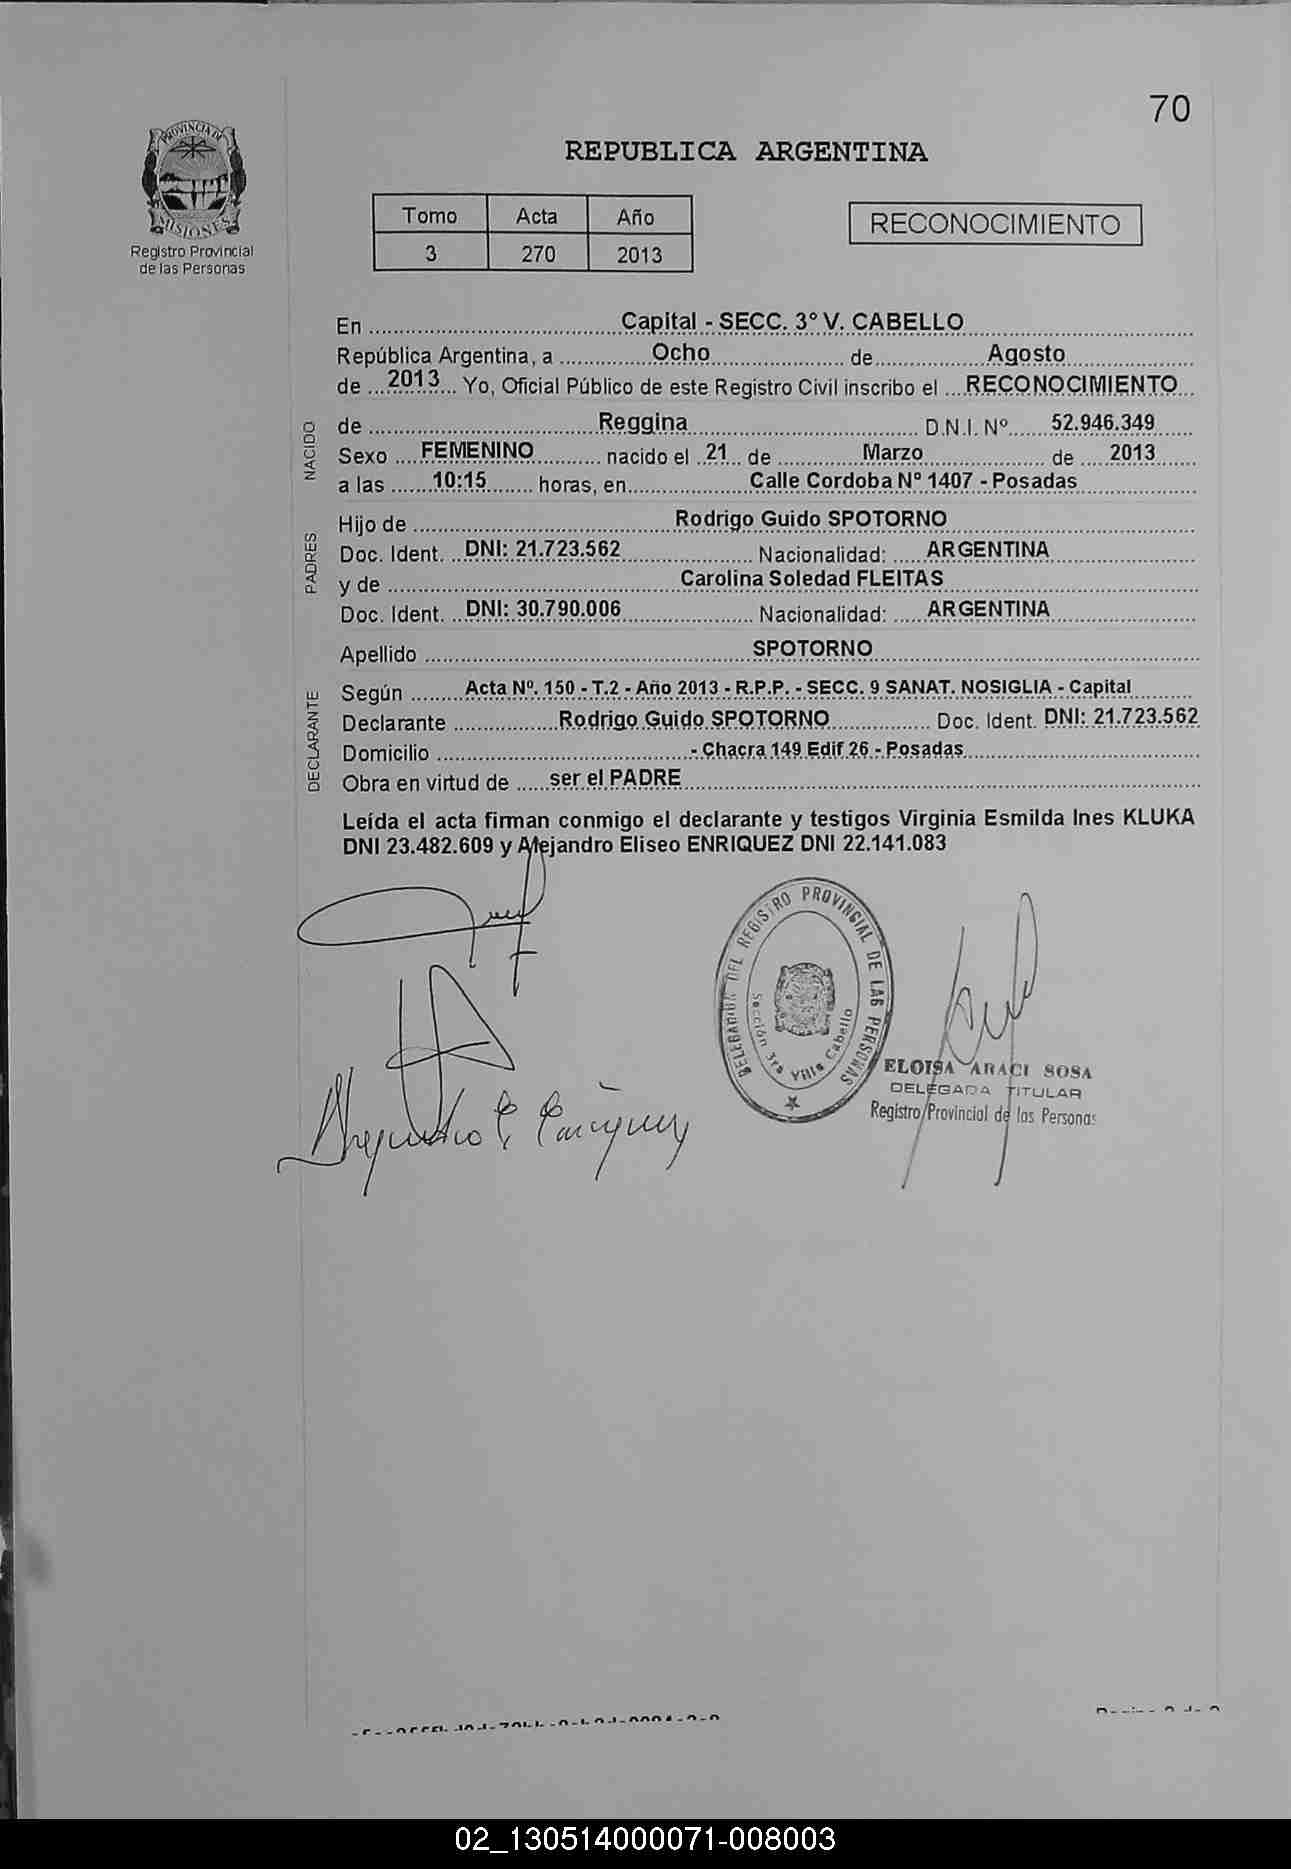 70
PROVINCIA DE
MISIONES
Registro Provincial
de las Personas
REPUBLICA ARGENTINA
Tomo Acta Año
3 270 2013
RECONOCIMIENTO
En Capital - SECC. 3° V. CABELLO
República Argentina, a Ocho de Agosto
de 2013 Yo, Oficial Público de este Registro Civil inscribo el RECONOCIMIENTO
NACIDO
de Reggina D.N.I. Nº 52.946.349
Sexo FEMENINO nacido el 21 de Marzo de 2013
a las 10:15 horas, en Calle Cordoba Nº 1407 - Posadas
PADRES
Hijo de Rodrigo Guido SPOTORNO
Doc. Ident. DNI: 21.723.562 Nacionalidad: ARGENTINA
y de Carolina Soledad FLEITAS
Doc. Ident. DNI: 30.790.006 Nacionalidad: ARGENTINA
Apellido SPOTORNO
DECLARANTE
Según Acta Nº. 150 - T.2 - Año 2013 - R.P.P. - SECC. 9 SANAT. NOSIGLIA - Capital
Declarante Rodrigo Guido SPOTORNO Doc. Ident. DNI: 21.723.562
Domicilio - Chacra 149 Edif 26 - Posadas
Obra en virtud de ser el PADRE
Leída el acta firman conmigo el declarante y testigos Virginia Esmilda Ines KLUKA
DNI 23.482.609 y Alejandro Eliseo ENRIQUEZ DNI 22.141.083
DELEGACION DEL REGISTRO PROVINCIAL DE LAS PERSONAS
Sección 3ra Villa Cabello
ELOISA ARACI SOSA
DELEGADA TITULAR
Registro Provincial de las Personas
02_130514000071-008003